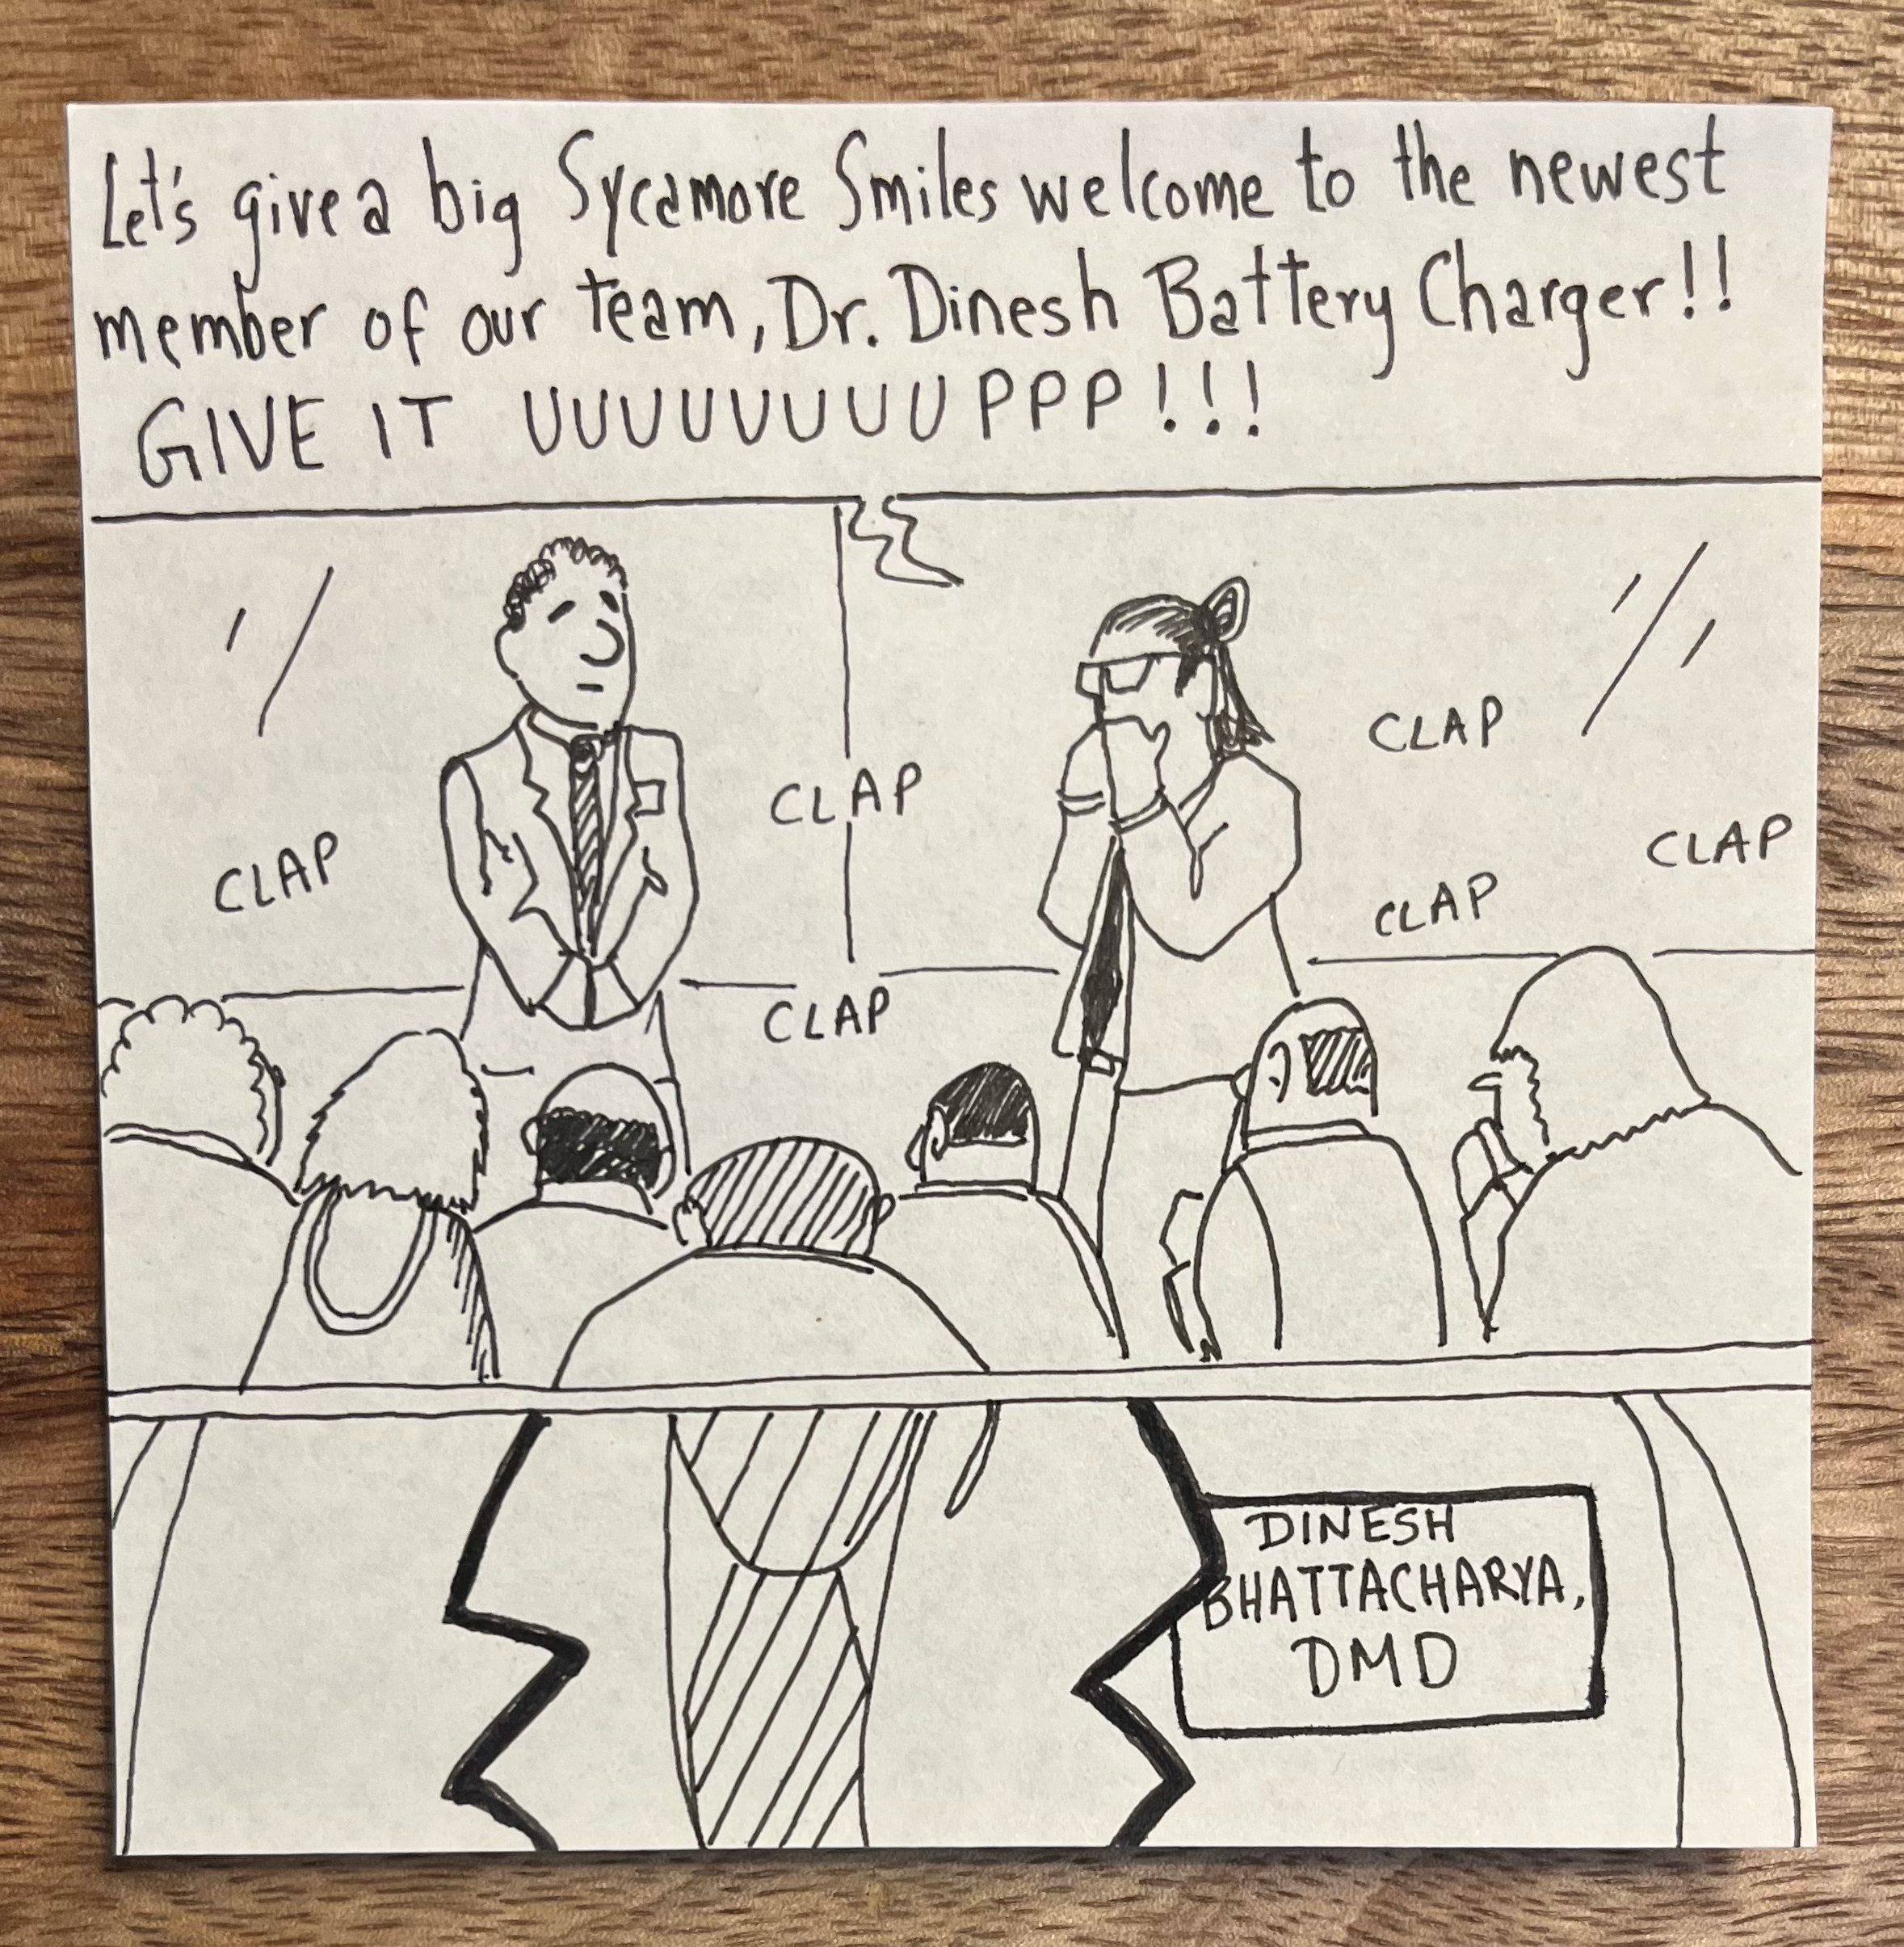 Let's give a big Sycamore Smiles welcome to the newest
member of our team, Dr. Dinesh Battery Charger!!
GIVE IT UUUUUUUUUPPP!!!
CLAP
CLAP
CLAP
CLAP
CLAP
CLAP
DINESH
BHATTACHARYA,
DMD